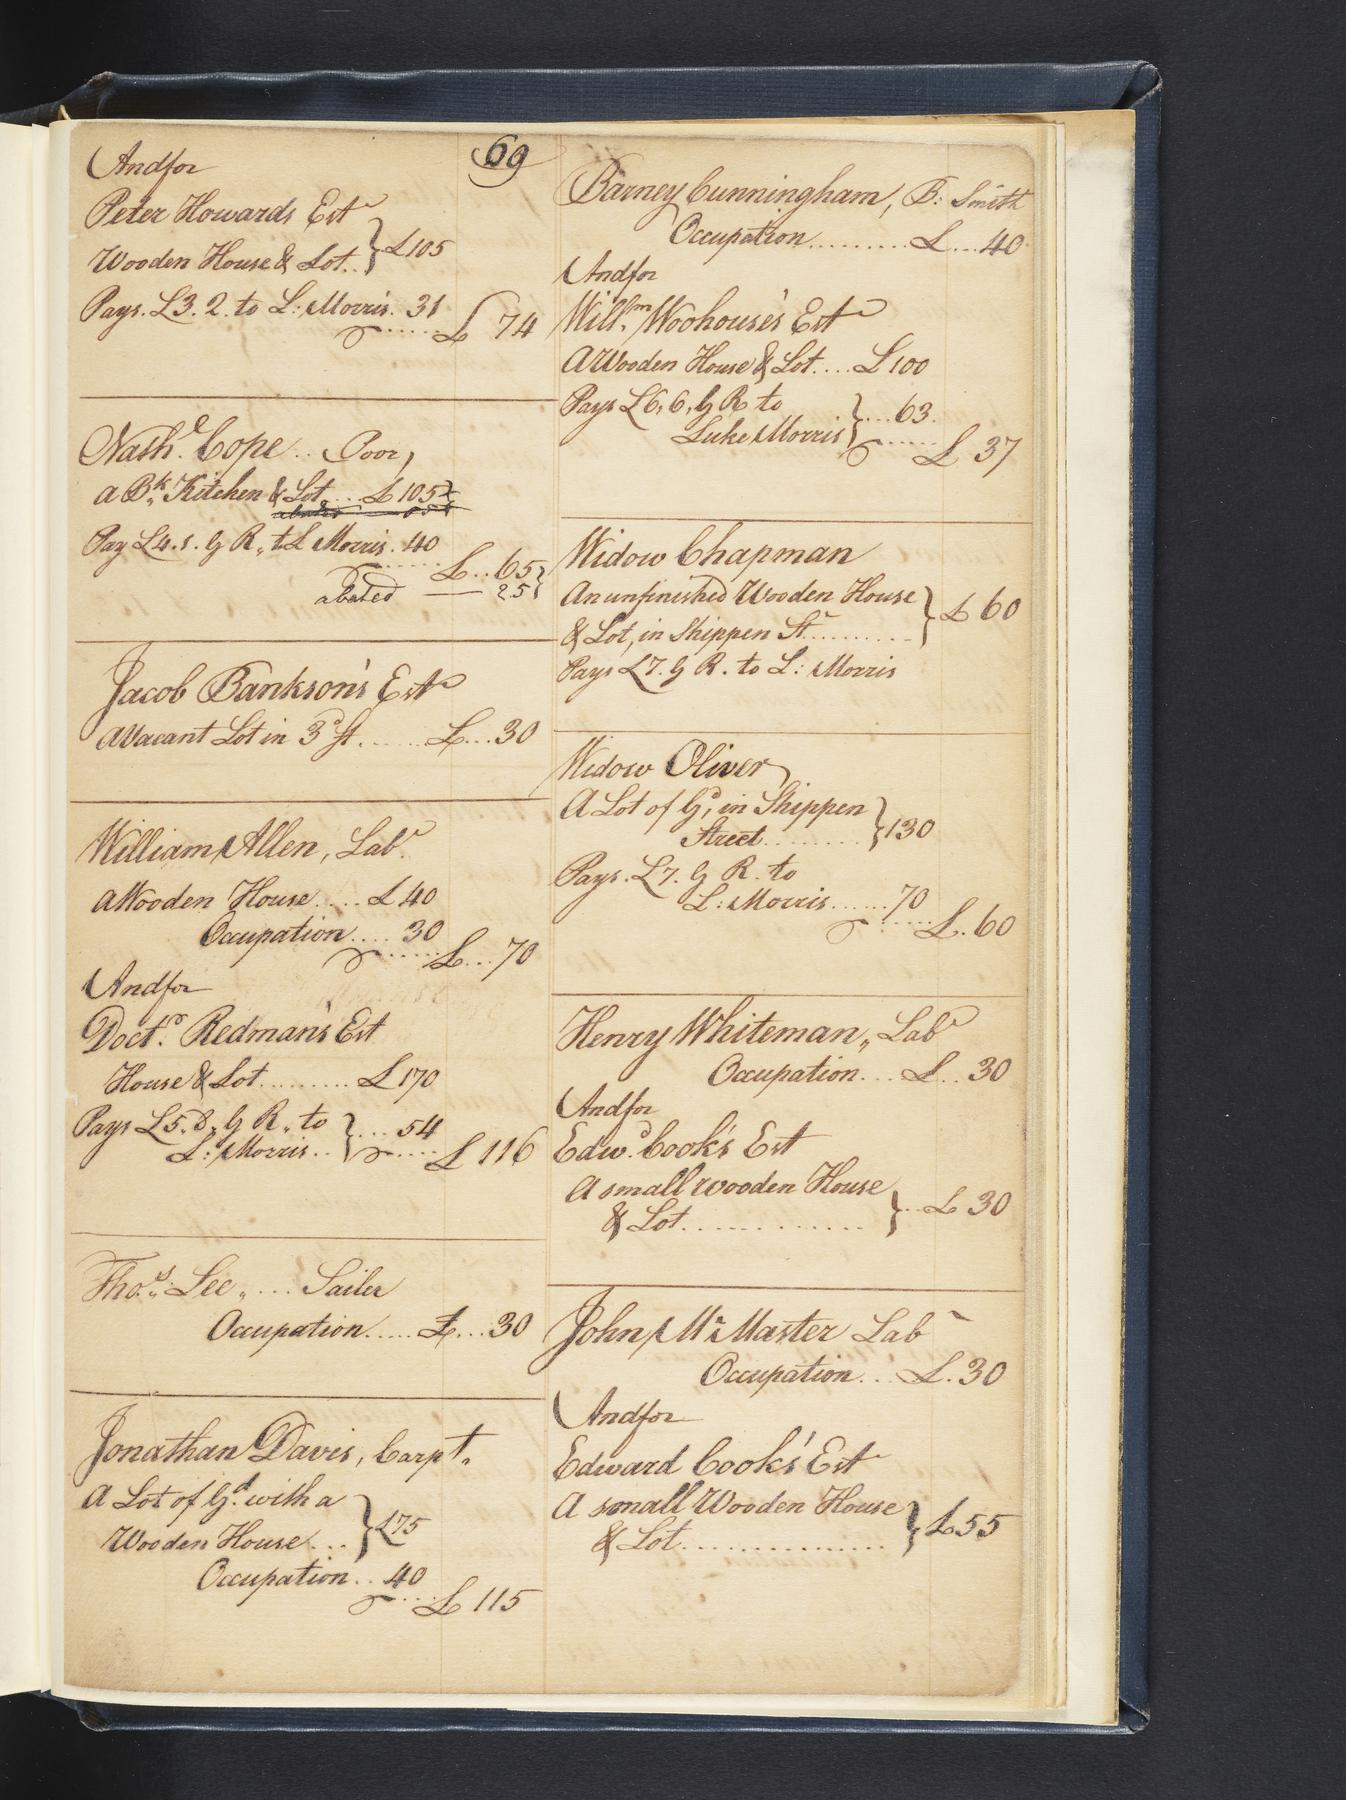 69
And for
Peter Howards Estr
Wooden House & Lot.. } £105
Pays. £3. 2. to L: Morris. 31
...... £ 74
Nathl. Cope .. Poor,
a Bk. Kitchen & Lot.... £105
abated
Pay £4. 1. G R,, to L Morris. 40
...... £.. 65
abated — 25
Jacob Bankson's Este
A Vacant Lot in 3d St. ...... £... 30
William Allen, Labr.
A Wooden House..... £40
Occupation.... 30
...... £... 70
And for
Doctr. Redman's Est
House & Lot......... £170
Pays £5. 8,, G R,, to
L: Morris.. } .... 54
..... £ 116
Thos. Lee,, ... Sailer
Occupation..... £... 30
Jonathan Davis, Carpt.
A Lot of Gd. with a
Wooden House.... } £75
Occupation.. 40
.... £ 115
Barney Cunningham, B: Smith
Occupation......... £... 40
And for
Willm. Woohouse's Este
A Wooden House & Lot.... £100
Pays £6, 6, G R to
Luke Morris } ... 63.
...... £ 37
Widow Chapman
An unfinished Wooden House
& Lot, in Shippen St. .......... } £ 60
Pays £7. G R. to L: Morris
Widow Oliver
A Lot of Gd, in Shippen
Street......... } 130
Pays. £7. G R. to
L: Morris...... 70
..... £. 60
Henry Whiteman,, Labr
Occupation... £.. 30
And for
Edwd. Cook's Est
A small wooden House
& Lot............. } .. £ 30
John Mc Master Labr
Occupation... £. 30
And for
Edward Cook's Este
A small Wooden House
& Lot............... } £55